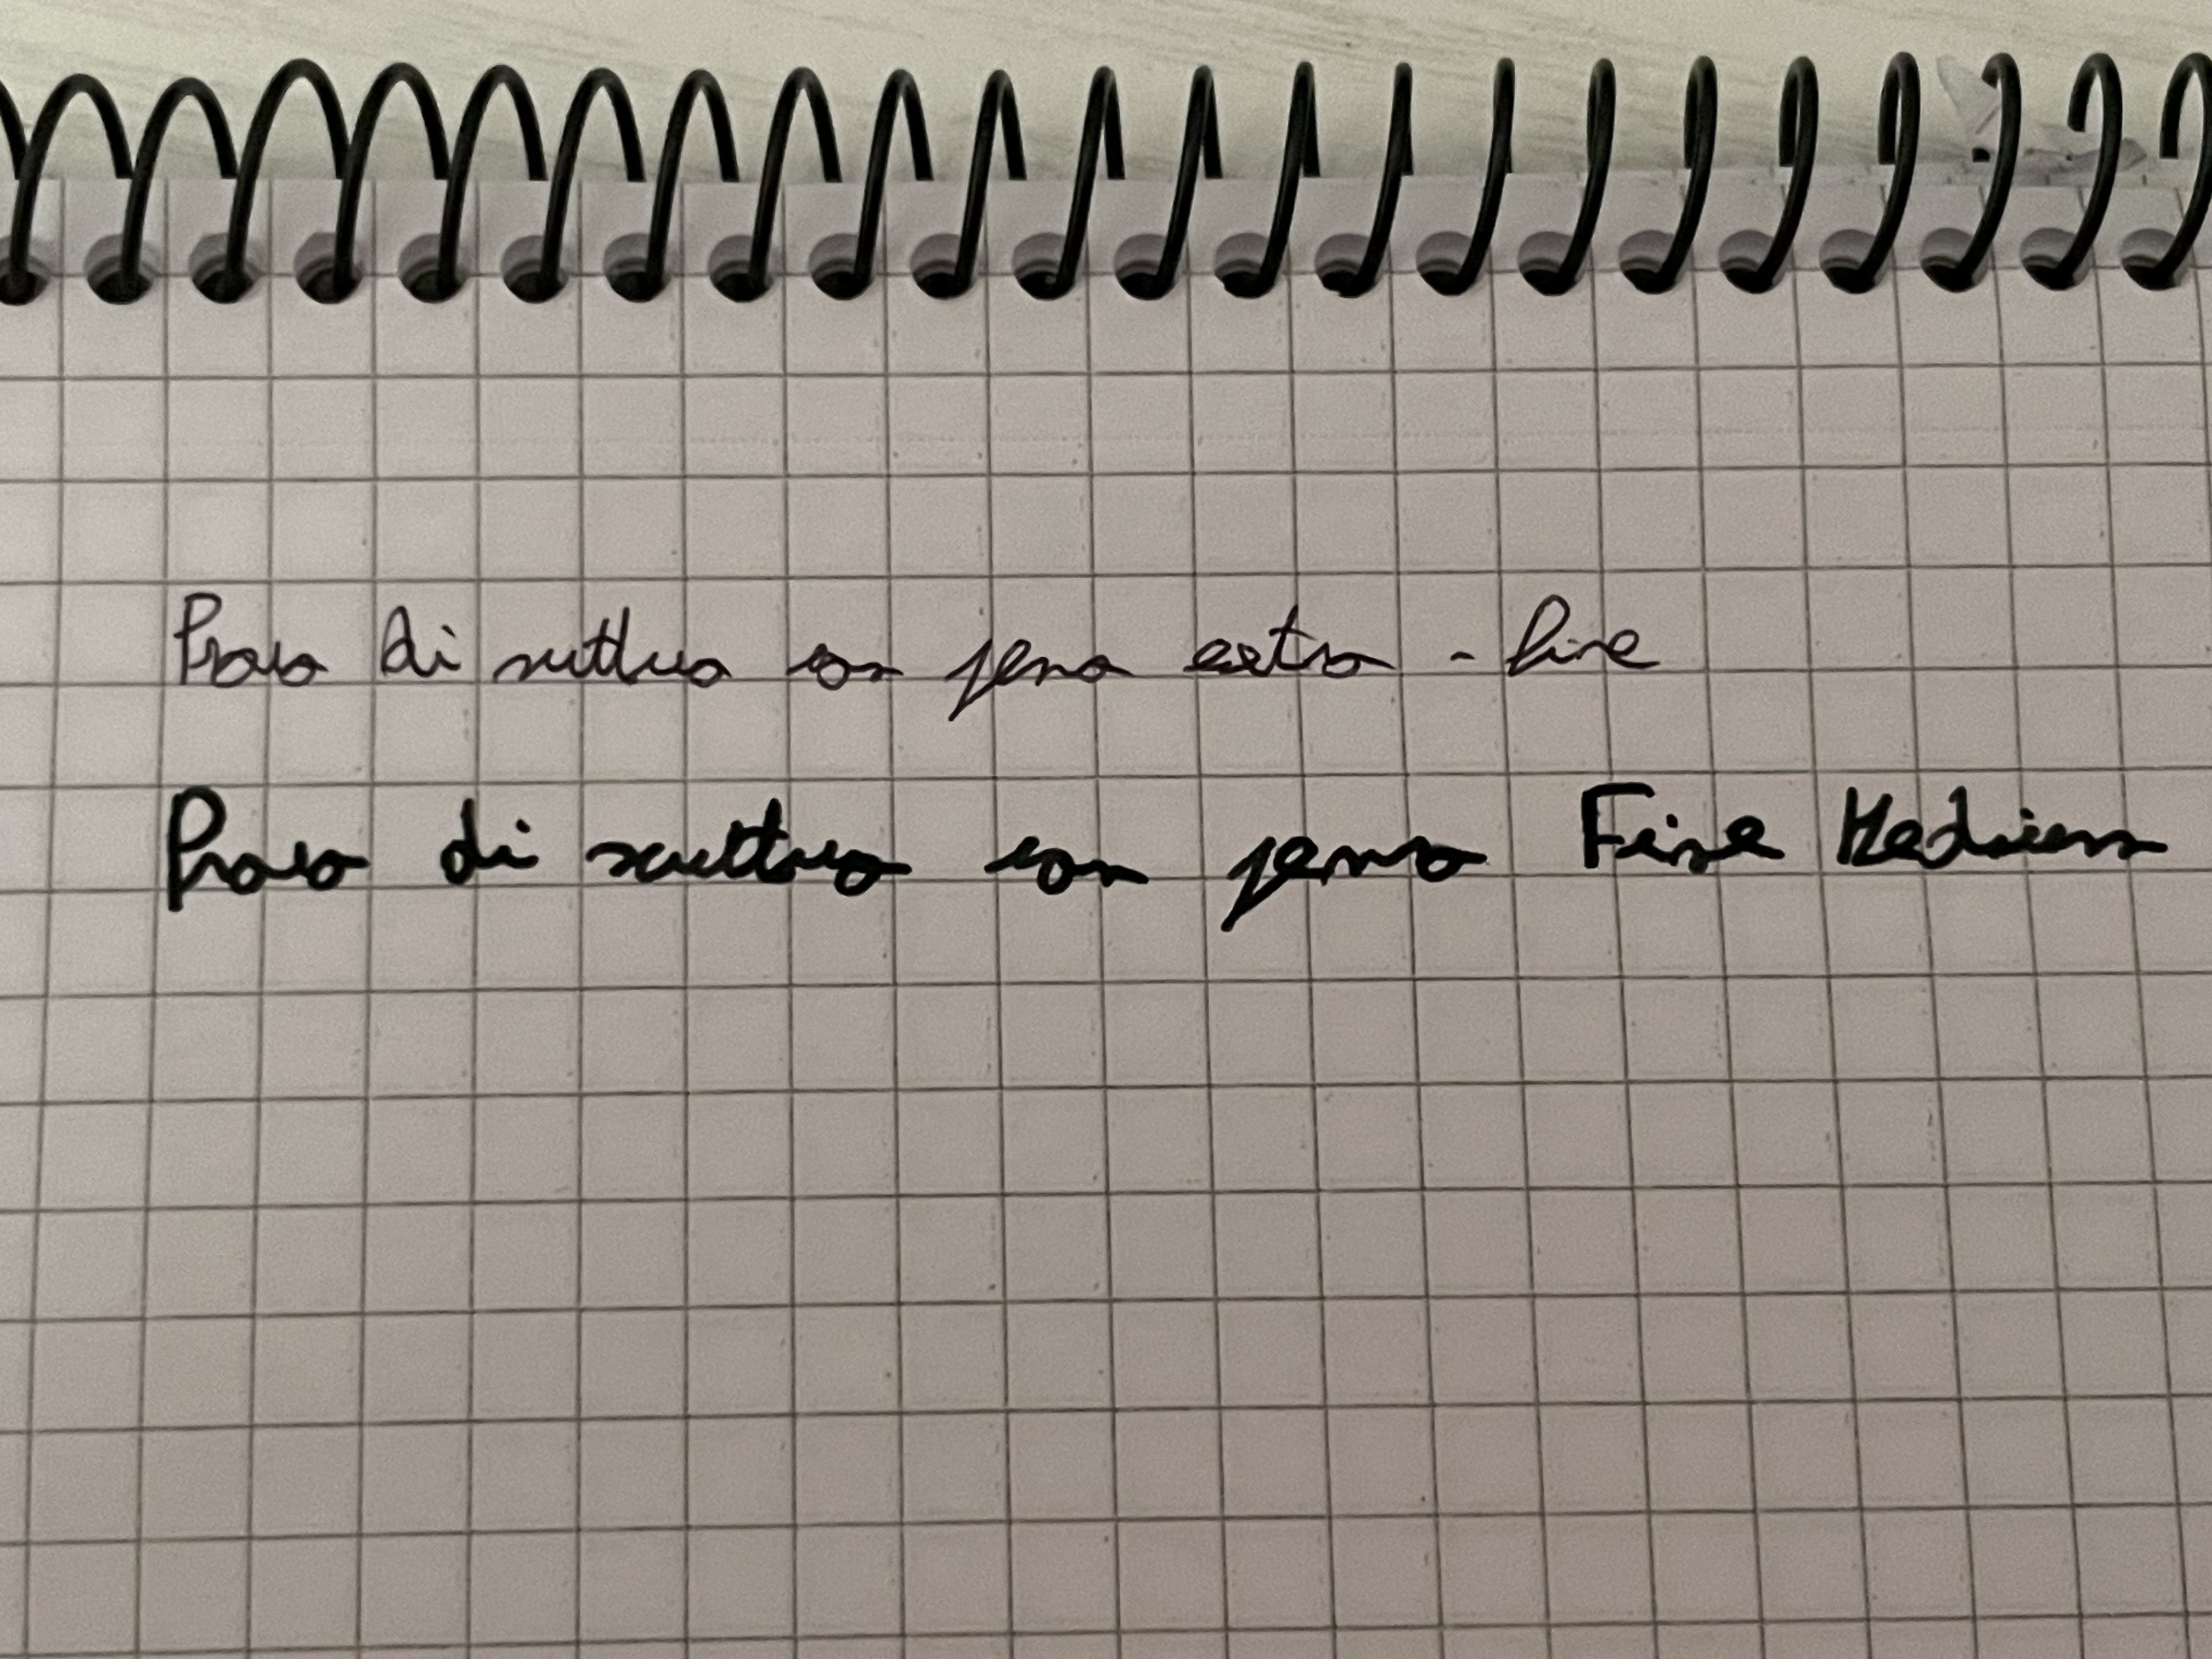 Prova di scrittura con penna extra-fine
Prova di scrittura con penna Fine Medium